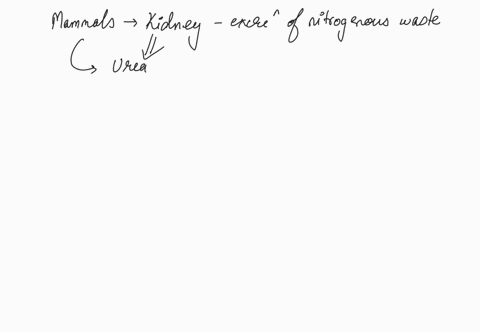 Mammals → Kidney - excreⁿ of nitrogenous waste
↳ Urea